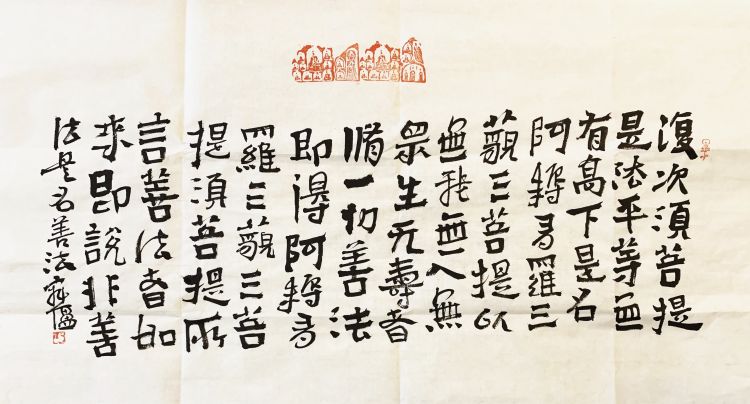 復次須菩提
是法平等無
有高下是名
阿耨多羅三
藐三菩提以
無我無人無
眾生无壽者
脩一切善法
即得阿耨多
羅三藐三菩
提須菩提所
言善法者如
来即說非善
法是名善法